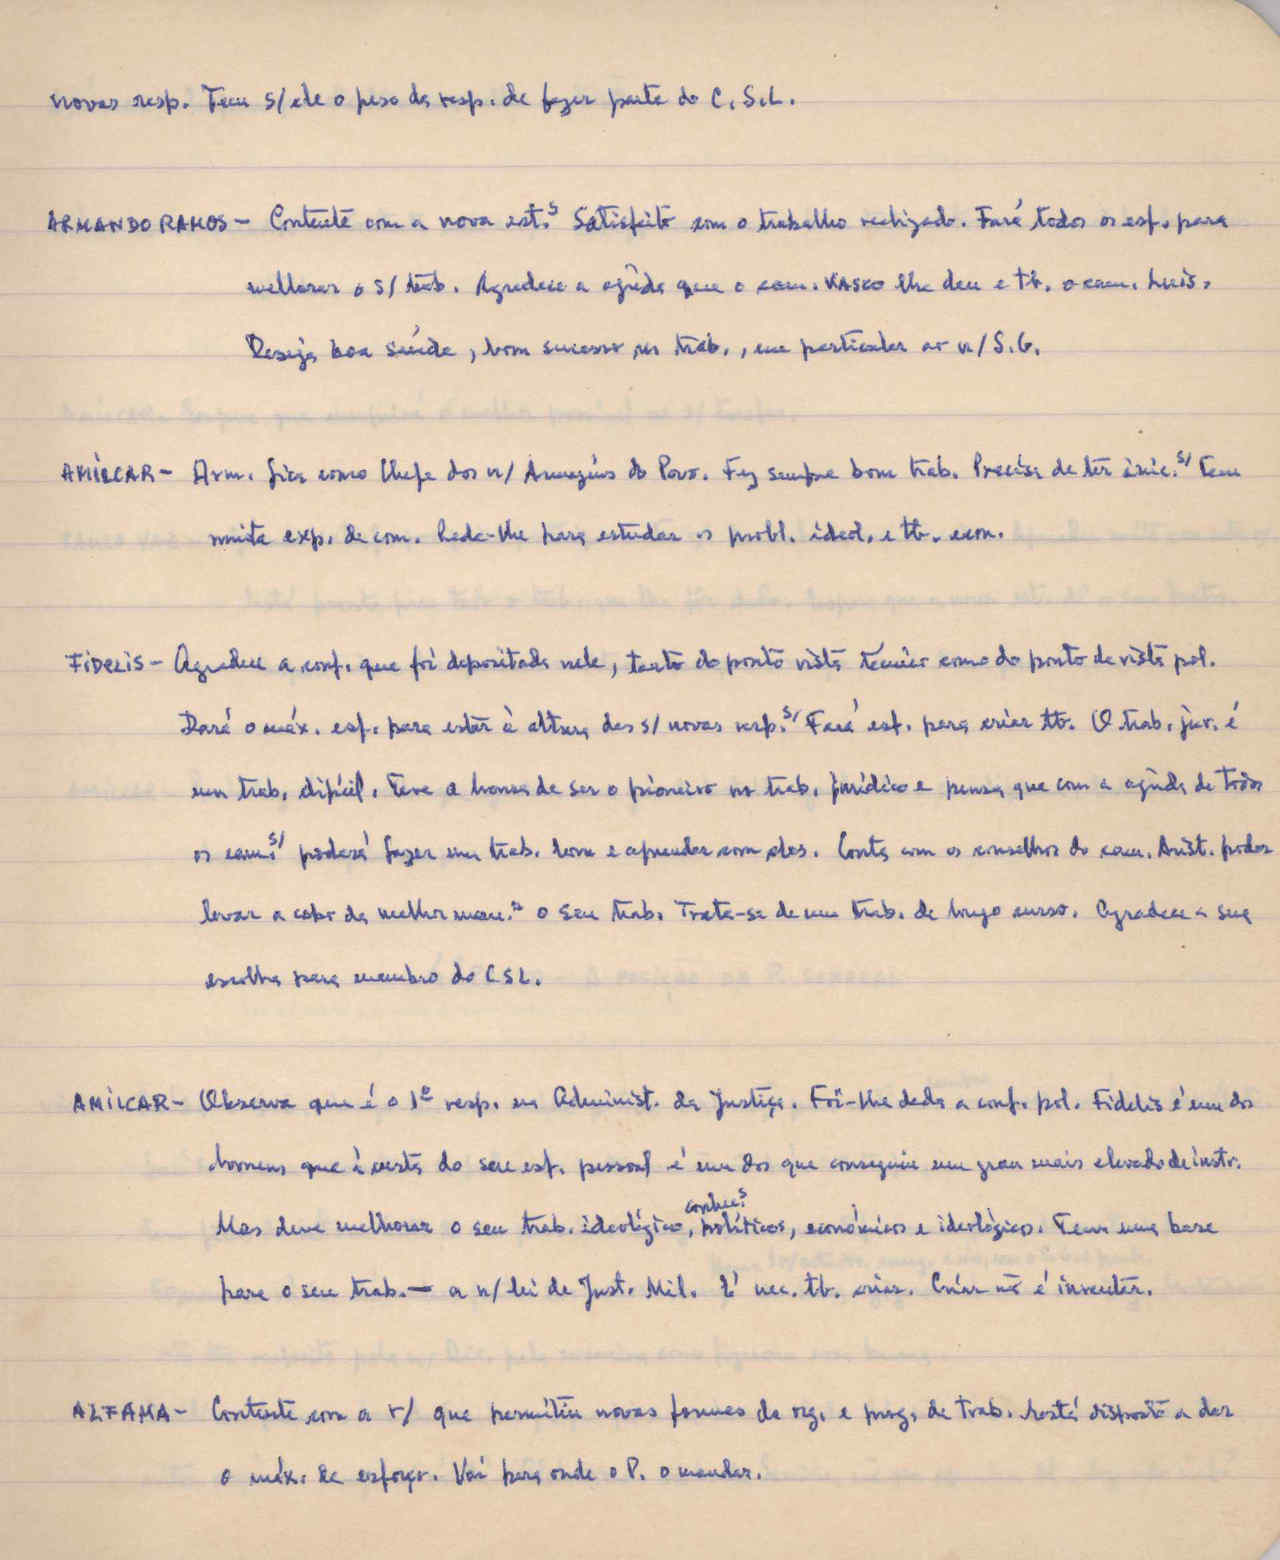 novas resp. Tem s/ ele o peso da resp. de fazer parte do C.S.L.
ARMANDO RAMOS - Contente com a nova est.s Satisfeito com o trabalho realizado. Fará todos os esf. para
melhorar o s/ trab. Agradece a ajuda que o cam. VASCO lhe deu e tb. o cam. Luis.
Deseja boa saúde, bom sucesso no trab., em particular ao n/ S.G.
AMÍLCAR - Arm. fica como Chefe dos n/ Armazéns do Povo. Fez sempre bom trab. Precisa de ter inic.s/ Tem
muita exp. de com. Pede-lhe para estudar os probl. ideol. e tb. econ.
FIDELIS - Agradece a conf. que foi depositada nele, tanto do ponto vista técnico como do ponto de vista pol.
Dará o máx. esf. para estar à altura das s/ novas resp.s/ Fará esf. para criar tb. O trab. jur. é
um trab. difícil. Teve a honra de ser o pioneiro no trab. jurídico e pensa que com a ajuda de todos
os cam.s/ poderá fazer um trab. bom e aprender com eles. Conta com os conselhos do cam. Arist. poder
levar a cabo da melhor man.a o seu trab. Trata-se de um trab. de longo curso. Agradece a sua
escolha para membro do CSL.
AMÍLCAR - Observa que é o 1º resp. na Administ. da Justiça. Foi-lhe dada a conf. pol. Fidelis é um dos
homens que à custa do seu esf. pessoal é um dos que conseguiu um grau mais elevado de instr.
Mas deve melhorar o seu trab. ideológico, conhec.s políticos, económicos e ideológicos. Tem uma base
para o seu trab. - a n/ lei de Just. Mil. É nec. tb. criar. Criar nã é inventar.
ALFAMA - Contente com a r/ que permitiu novas formas de org. e prog. de trab. Está disposto a dar
o máx. de esforço. Vai para onde o P. o mandar.